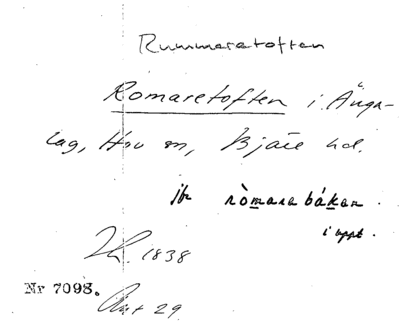 Rummaretoften
Romaretoften i Änga-
lag, Hov sn, Bjäre hd.
jfr ròmarabákan.
i uppt.
1838
Nr 7098.
29